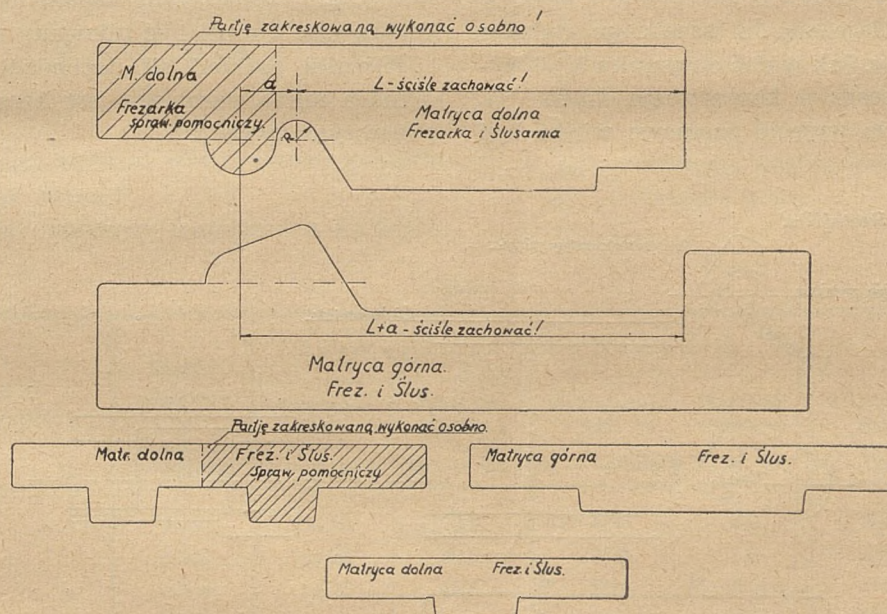 Partję zakreskowaną wykonać osobno!
M. dolna
a
L - ściśle zachować!
Frezarka
spraw. pomocniczy.
Matryca dolna
Frezarka i Ślusarnia
R
L+a - ściśle zachować!
Matryca górna.
Frez. i Ślus.
Partję zakreskowaną wykonać osobno.
Matr. dolna
Frez. i Ślus.
Spraw. pomocniczy
Matryca górna
Frez. i Ślus.
Matryca dolna
Frez. i Ślus.